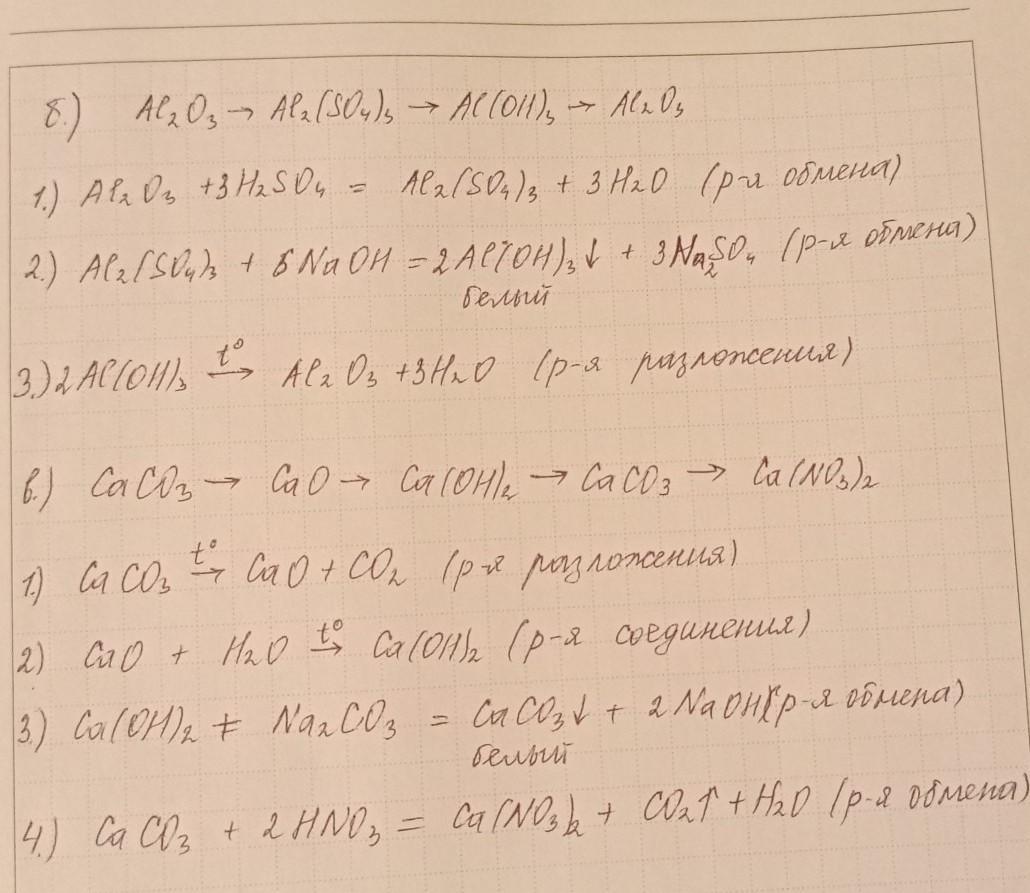 б.) Al₂O₃ → Al₂(SO₄)₃ → Al(OH)₃ → Al₂O₃
1.) Al₂O₃ + 3H₂SO₄ = Al₂(SO₄)₃ + 3H₂O (р-я обмена)
2.) Al₂(SO₄)₃ + 6NaOH = 2Al(OH)₃↓ + 3Na₂SO₄ (р-я обмена)
белый
3.) 2Al(OH)₃ t° → Al₂O₃ + 3H₂O (р-я разложения)
в.) CaCO₃ → CaO → Ca(OH)₂ → CaCO₃ → Ca(NO₃)₂
1.) CaCO₃ t° → CaO + CO₂ (р-я разложения)
2) CaO + H₂O t° → Ca(OH)₂ (р-я соединения)
3.) Ca(OH)₂ + Na₂CO₃ = CaCO₃↓ + 2NaOH (р-я обмена)
белый
4.) CaCO₃ + 2HNO₃ = Ca(NO₃)₂ + CO₂↑ + H₂O (р-я обмена)